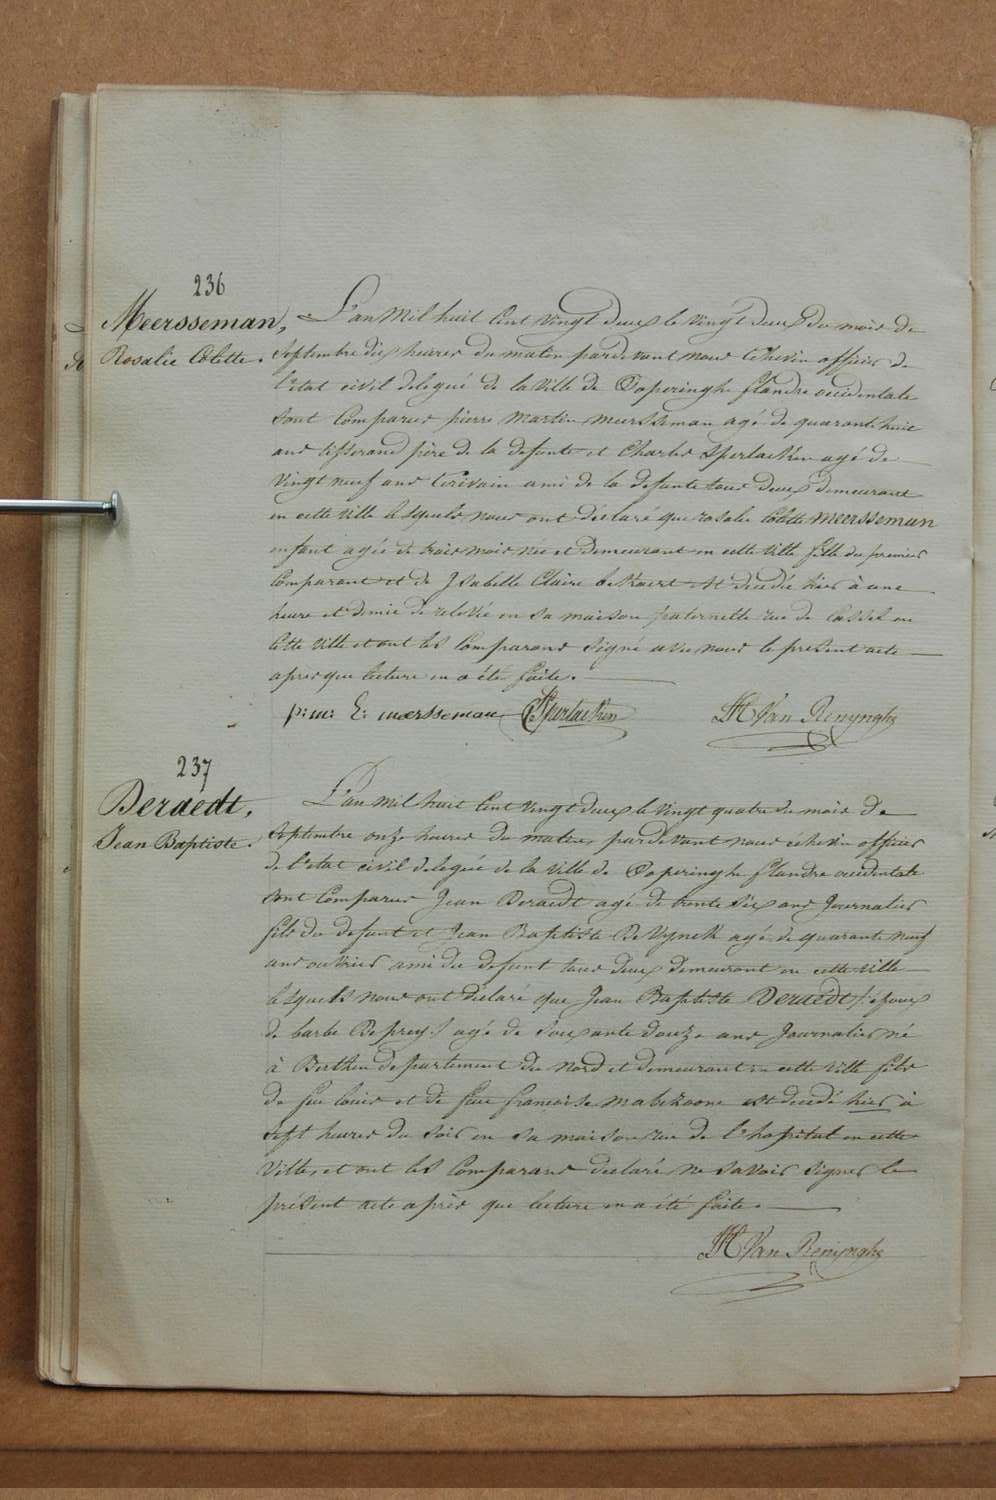 236
Meersseman,
Rosalie Colette.
L'an mil huit cent vingt deux le vingt deux du mois de
Septembre dix heures du matin pardevant nous échevin officier de
l'état civil delegué de la ville de Poperinghe flandre occidentale
sont comparus pierre Martin meersseman agé de quarante huit
ans tisserand père de la defunte et Charles Sperlaeken agé de
vingt neuf ans écrivain ami de la defunte tous deux demeurant
en cette ville lesquels nous ont déclaré que rosalie Colette Meersseman
enfant agée de trois mois née et demeurant en cette ville fille du premier
comparant et de Isabelle Claire est decedée hier à une
heure et demie de relevée en sa maison paternelle rue de Cassel en
cette ville et ont les comparans signé avec nous le présent acte
apres que lecture en a été faite.
p: m: meersseman Sperlaeken Van Renynghe
237
Deraedt,
Jean Baptiste.
L'an mil huit cent vingt deux le vingt quatre du mois de
Septembre onze heures du matin pardevant nous échevin officier
de l'etat civil delegué de la ville de Poperinghe flandre occidentale
sont comparus Jean Deraedt agé de trente six ans Journalier
fils du defunt et Jean Baptiste De Vynck agé de quarante neuf
ans ouvrier ami du defunt tous deux demeurant en cette ville
lesquels nous ont déclaré que Jean Baptiste Deraedt /: époux
de barbe Deprey :/ agé de soixante douze ans Journalier né
à Berthen departement du Nord et demeurant en cette ville fils
de feu louis et de feue françoise est decedé hier à
sept heures du soir en sa maison rue de l'hopital en cette
ville, et ont les comparans declaré ne savoir signer le
présent acte après que lecture en a été faite.
Van Renynghe